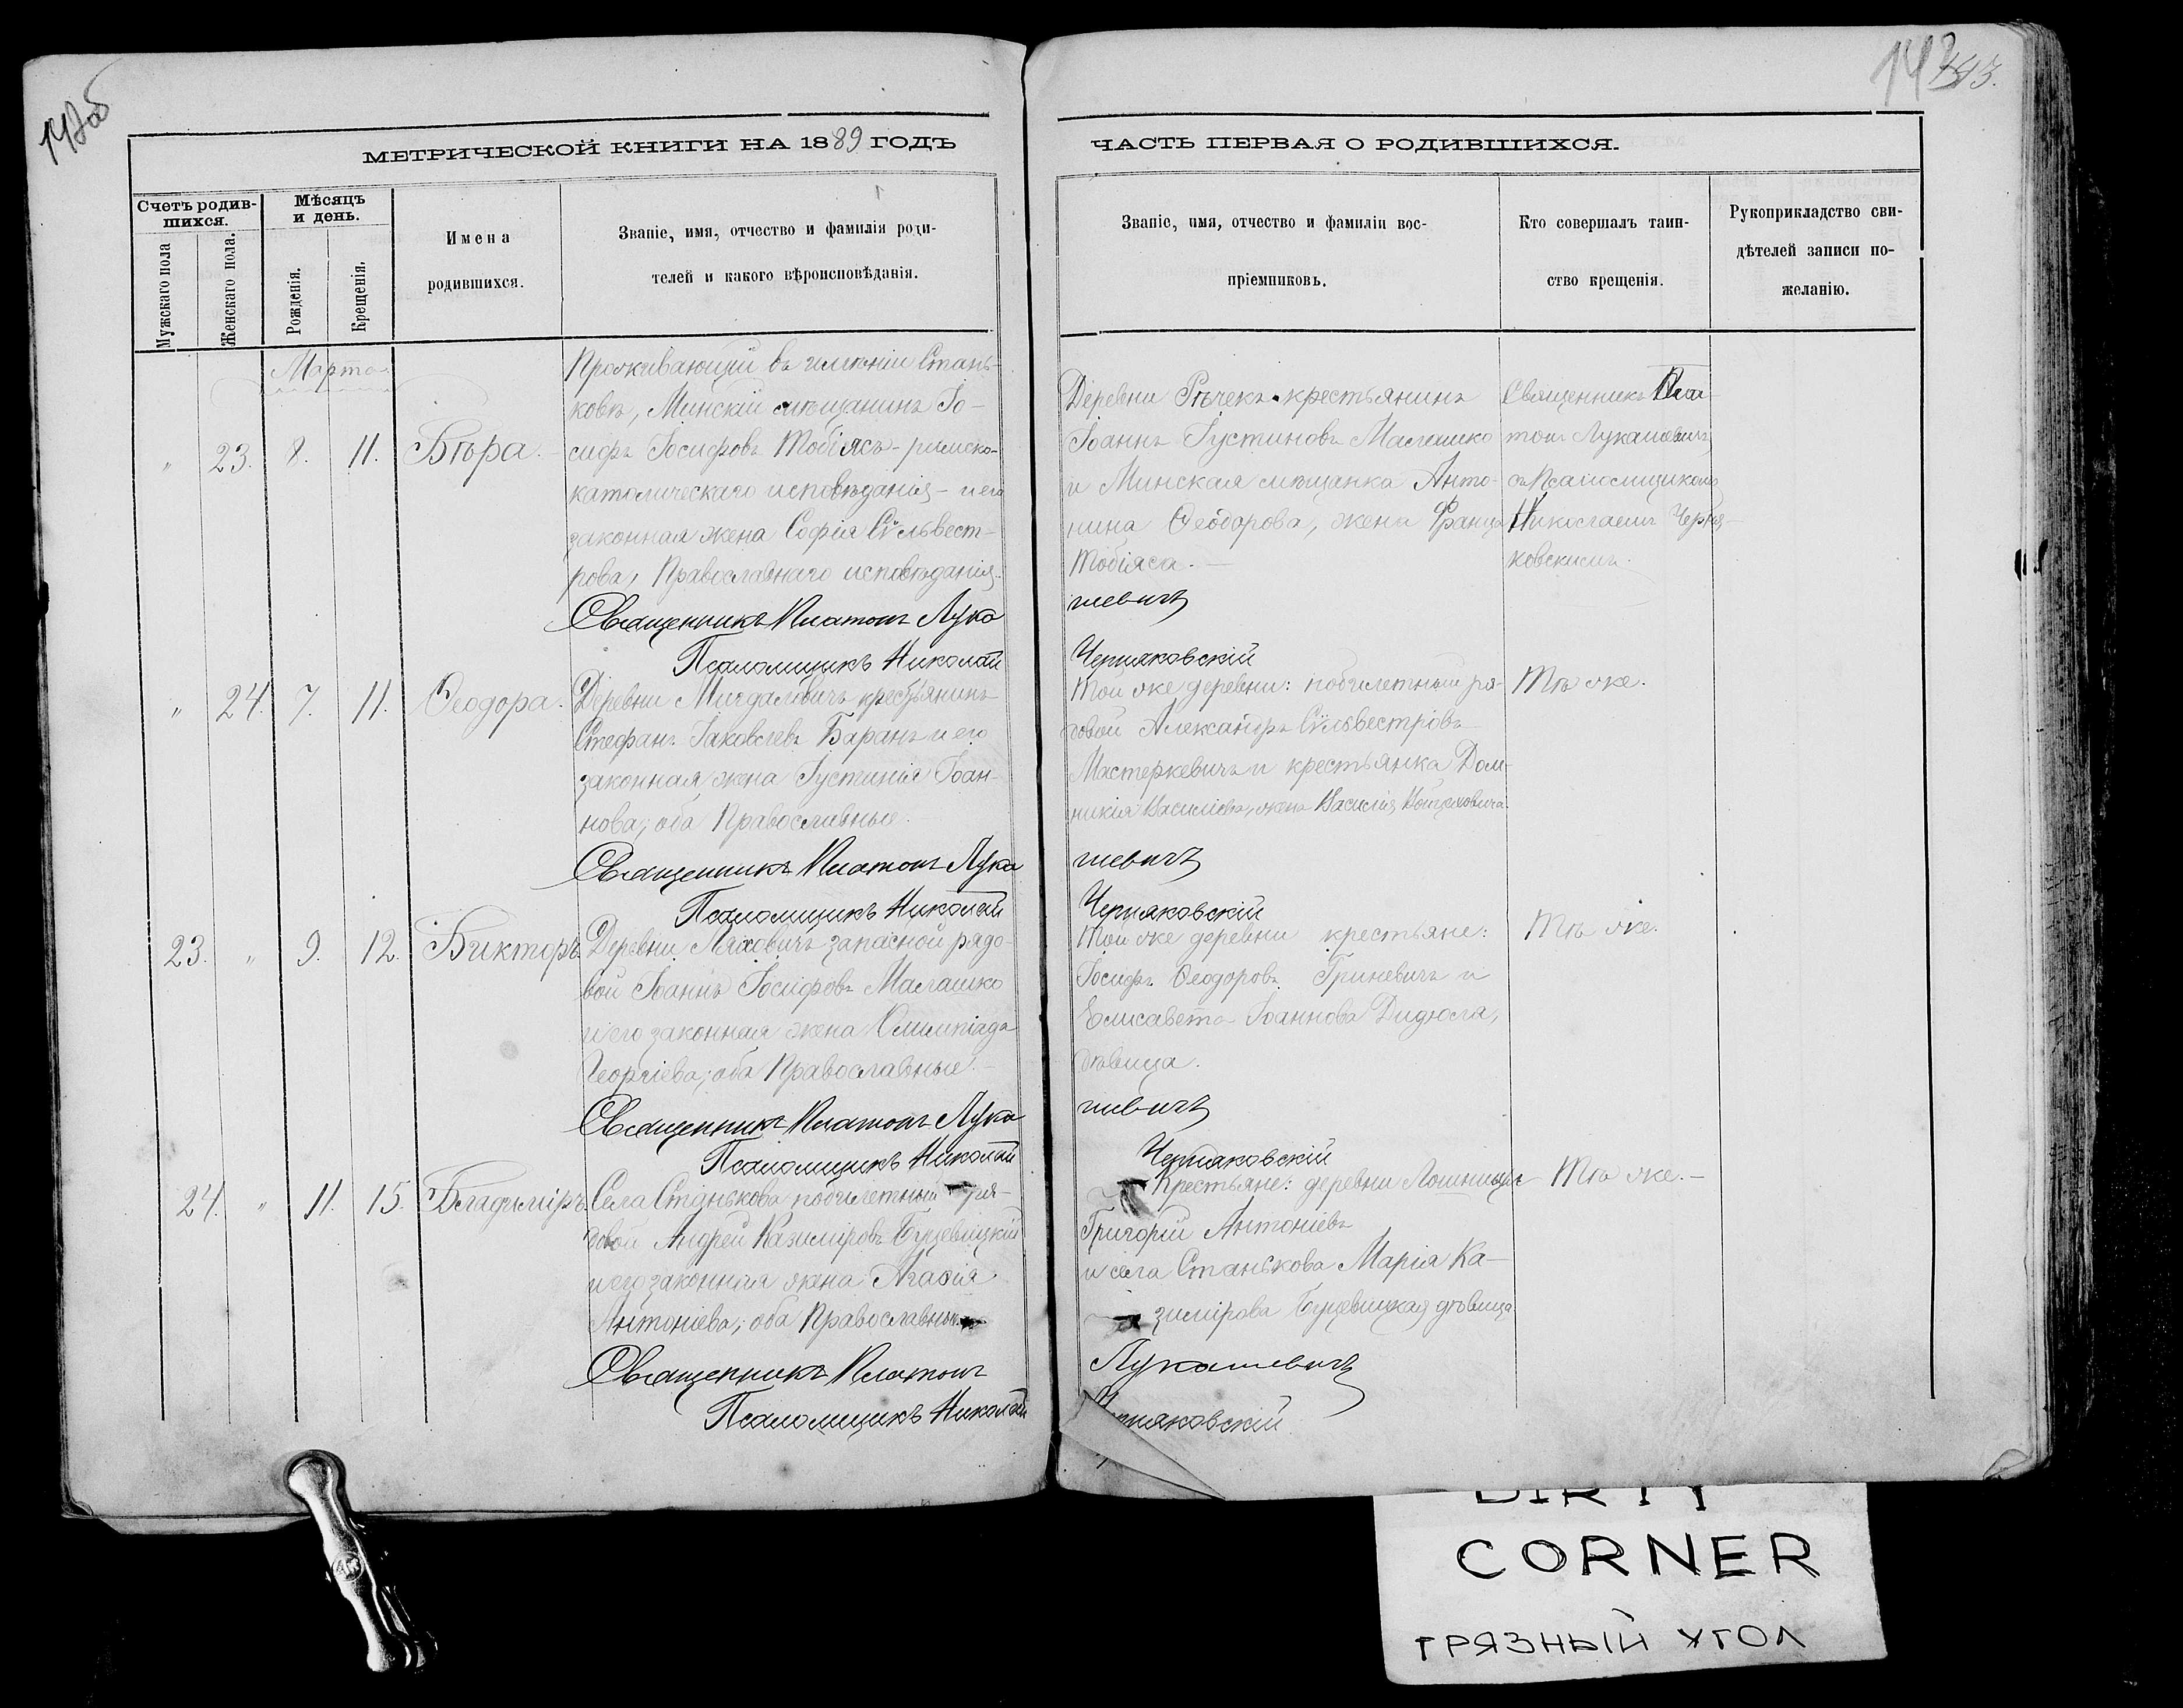 142об
142
143.
МЕТРИЧЕСКОЙ КНИГИ НА 1889 ГОДЪ
ЧАСТЬ ПЕРВАЯ О РОДИВШИХСЯ.
Счетъ родив-
шихся.
Мужскаго пола
Женскаго пола.
Мѣсяцъ
и день.
Рожденія.
Крещенія.
Имена
родившихся.
Званіе, имя, отчество и фамилія роди-
телей и какого вѣроисповѣданія.
Званіе, имя, отчество и фамиліи вос-
пріемниковъ.
Кто совершалъ таин-
ство крещенія.
Рукоприкладство сви-
дѣтелей записи по-
желанію.
Марта
" 23. 8. 11. Вѣра.
Проживающій въ имѣніи Стань-
ковѣ, Минскій мѣщанинъ Іо-
сифъ Іосифовъ Тобіясъ - римско-
католическаго исповѣданія - и его
законная жена Софія Сѵльвест-
рова, Православнаго исповѣданія.
Деревни Рѣчекъ крестьянинъ
Іоаннъ Іустиновъ Малашко
и Минская мѣщанка Анто-
нина Ѳеодорова, жена Франца
Тобіяса.
Священникъ Пла-
тонъ Лукашевичъ,
съ Псаломщикомъ
Николаемъ Черня-
ковскимъ.
Священникъ Платонъ Лука
шевичъ
Псаломщикъ Николай
Черняковскій
" 24. 7. 11. Ѳеодора.
Деревни Мигдаловичъ крестьянинъ
Стефанъ Іаковлевъ Баранъ и его
законная жена Іустинія Іоан-
нова; оба Православные.
Той же деревни: побилетный ря-
довой Александръ Сѵльвестровъ
Мастеркевичъ и крестьянка Дом-
никія Василіева, жена Василія
Тѣ же.
Священникъ Платонъ Лука
шевичъ
Псаломщикъ Николай
Черняковскій
23. " 9. 12. Викторъ.
Деревни Ляховичъ запасной рядо-
вой Іоаннъ Іосифовъ Малашко
и его законная жена Олимпіада
Георгіева; оба Православные.
Той же деревни крестьяне:
Іосифъ Ѳеодоровъ Гриневичъ и
Елисавета Іоаннова Дидюля,
дѣвица.
Тѣ же.
Священникъ Платонъ Лука
шевичъ
Псаломщикъ Николай
Черняковскій
24. " 11. 15. Владиміръ.
Села Станькова побилетный ря-
довой Андрей Казиміровъ Буцевицкій
и его законная жена Агаѳія
Антоніева; оба Православные.
Крестьяне: деревни Лошницы
Григорій Антоніевъ
и села Станькова Марія Ка-
зимірова Буцевицкая дѣвица.
Тѣ же. -
Священникъ Платонъ
Лукашевичъ
Псаломщикъ Николай
Черняковскій
DIRTY
CORNER
ГРЯЗНЫЙ УГОЛ